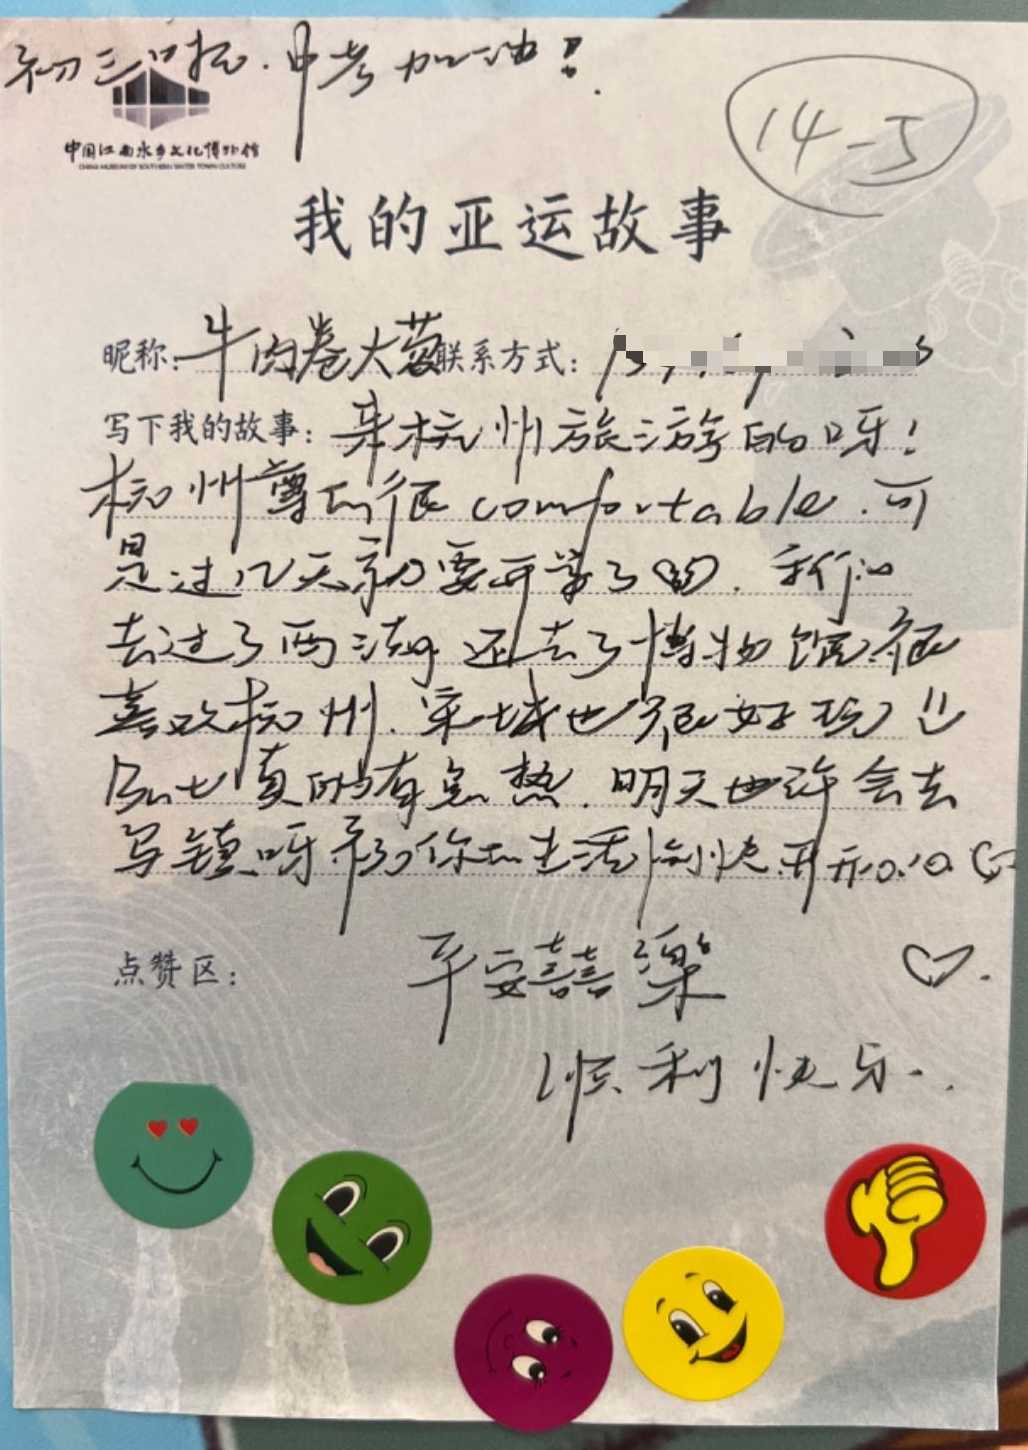 初三口拉.中考加油!
14-5
中国江南水乡文化博物馆
CHINA MUSEUM OF SOUTHERN WATER TOWN CULTURE
我的亚运故事
昵称:牛肉卷大葱联系方式:
写下我的故事:来杭州旅游的呀!
杭州尊的很comfortable.可
是过几天就要开学了.我们
去过了西湖还去了博物馆.很
喜欢杭州.宋城也很好玩
But真的有点热.明天也许会去
乌镇呀祝你的生活愉快.开开心心
点赞区:平安囍樂
顺利快乐..